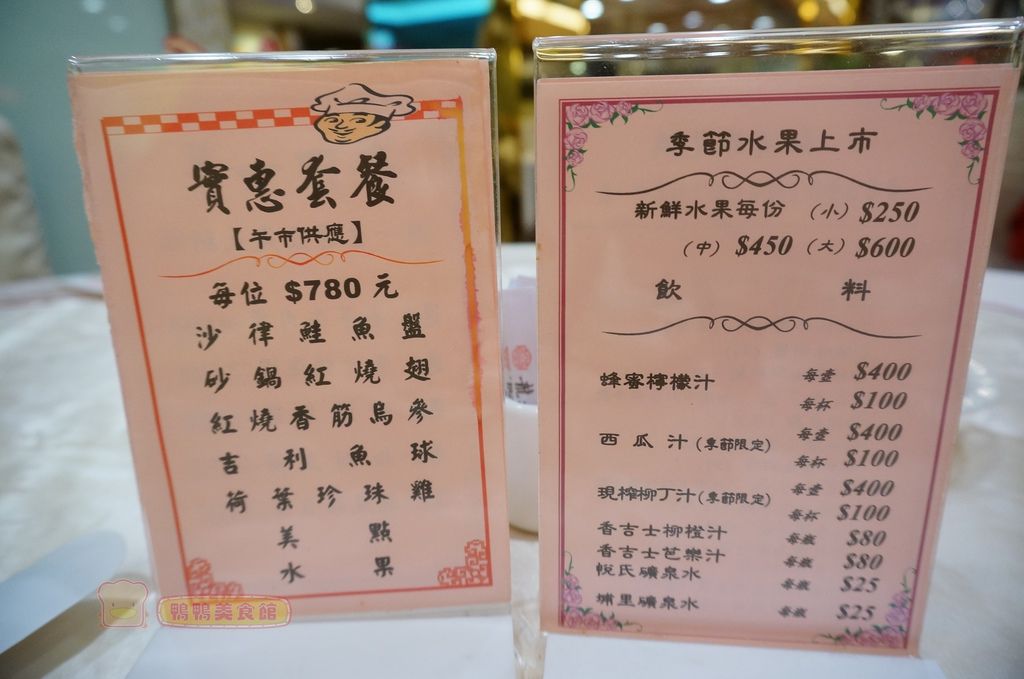 實惠套餐
【午市供應】
每位 $780 元
沙律鮭魚盤
砂鍋紅燒翅
紅燒香筋烏參
吉利魚球
荷葉珍珠雞
美點
水果
季節水果上市
新鮮水果每份 (小) $250
(中) $450 (大) $600
飲料
蜂蜜檸檬汁 每壺 $400
每杯 $100
西瓜汁(季節限定) 每壺 $400
每杯 $100
現榨柳丁汁(季節限定) 每壺 $400
每杯 $100
香吉士柳橙汁 每瓶 $80
香吉士芭樂汁 每瓶 $80
悅氏礦泉水 每瓶 $25
埔里礦泉水 每瓶 $25
鴨鴨美食館